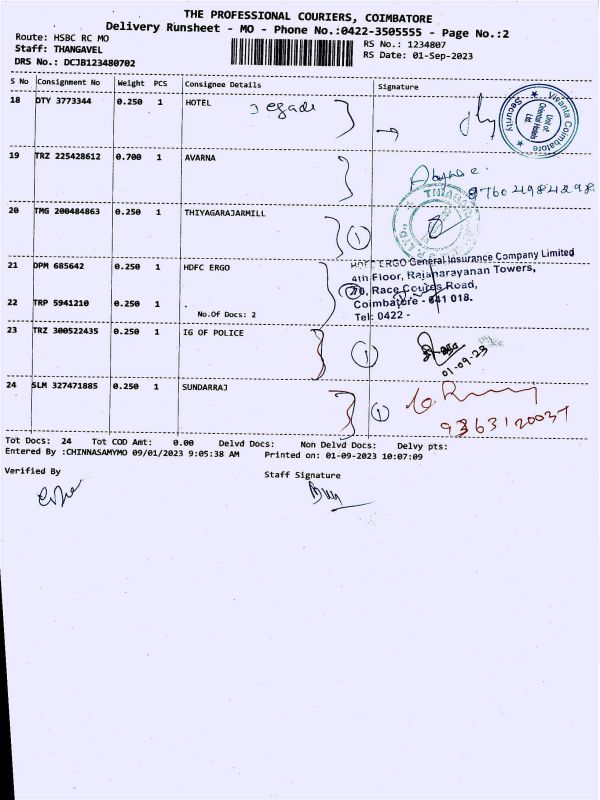 THE PROFESSIONAL COURIERS, COIMBATORE
Delivery Runsheet - MO - Phone No.:0422-3505555 - Page No.:2
Route: HSBC RC MO
Staff: THANGAVEL
DRS No.: DCJB123480702
RS No.: 1234807
RS Date: 01-Sep-2023
S No Consignment No Weight PCS Consignee Details Signature
18 DTY 3773344 0.250 1 HOTEL
Vivanta Coimbatore
Security
Unit of Oriental Hotels Ltd
19 TRZ 225428612 0.700 1 AVARNA
97604984298
20 TMG 200484863 0.250 1 THIYAGARAJARMILL
1
21 DPM 685642 0.250 1 HDFC ERGO
HDFC ERGO General Insurance Company Limited
4th Floor, Rajanarayanan Towers,
710, Race Course Road,
Coimbatore - 641 018.
Tel: 0422 -
22 TRP 5941210 0.250 1
No.Of Docs: 2
2
23 TRZ 300522435 0.250 1 IG OF POLICE
1
01-09-23
24 SLM 327471885 0.250 1 SUNDARRAJ
1
9363120037
Tot Docs: 24 Tot COD Amt: 0.00 Delvd Docs: Non Delvd Docs: Delvy pts:
Entered By :CHINNASAMYMO 09/01/2023 9:05:38 AM Printed on: 01-09-2023 10:07:09
Verified By
Staff Signature